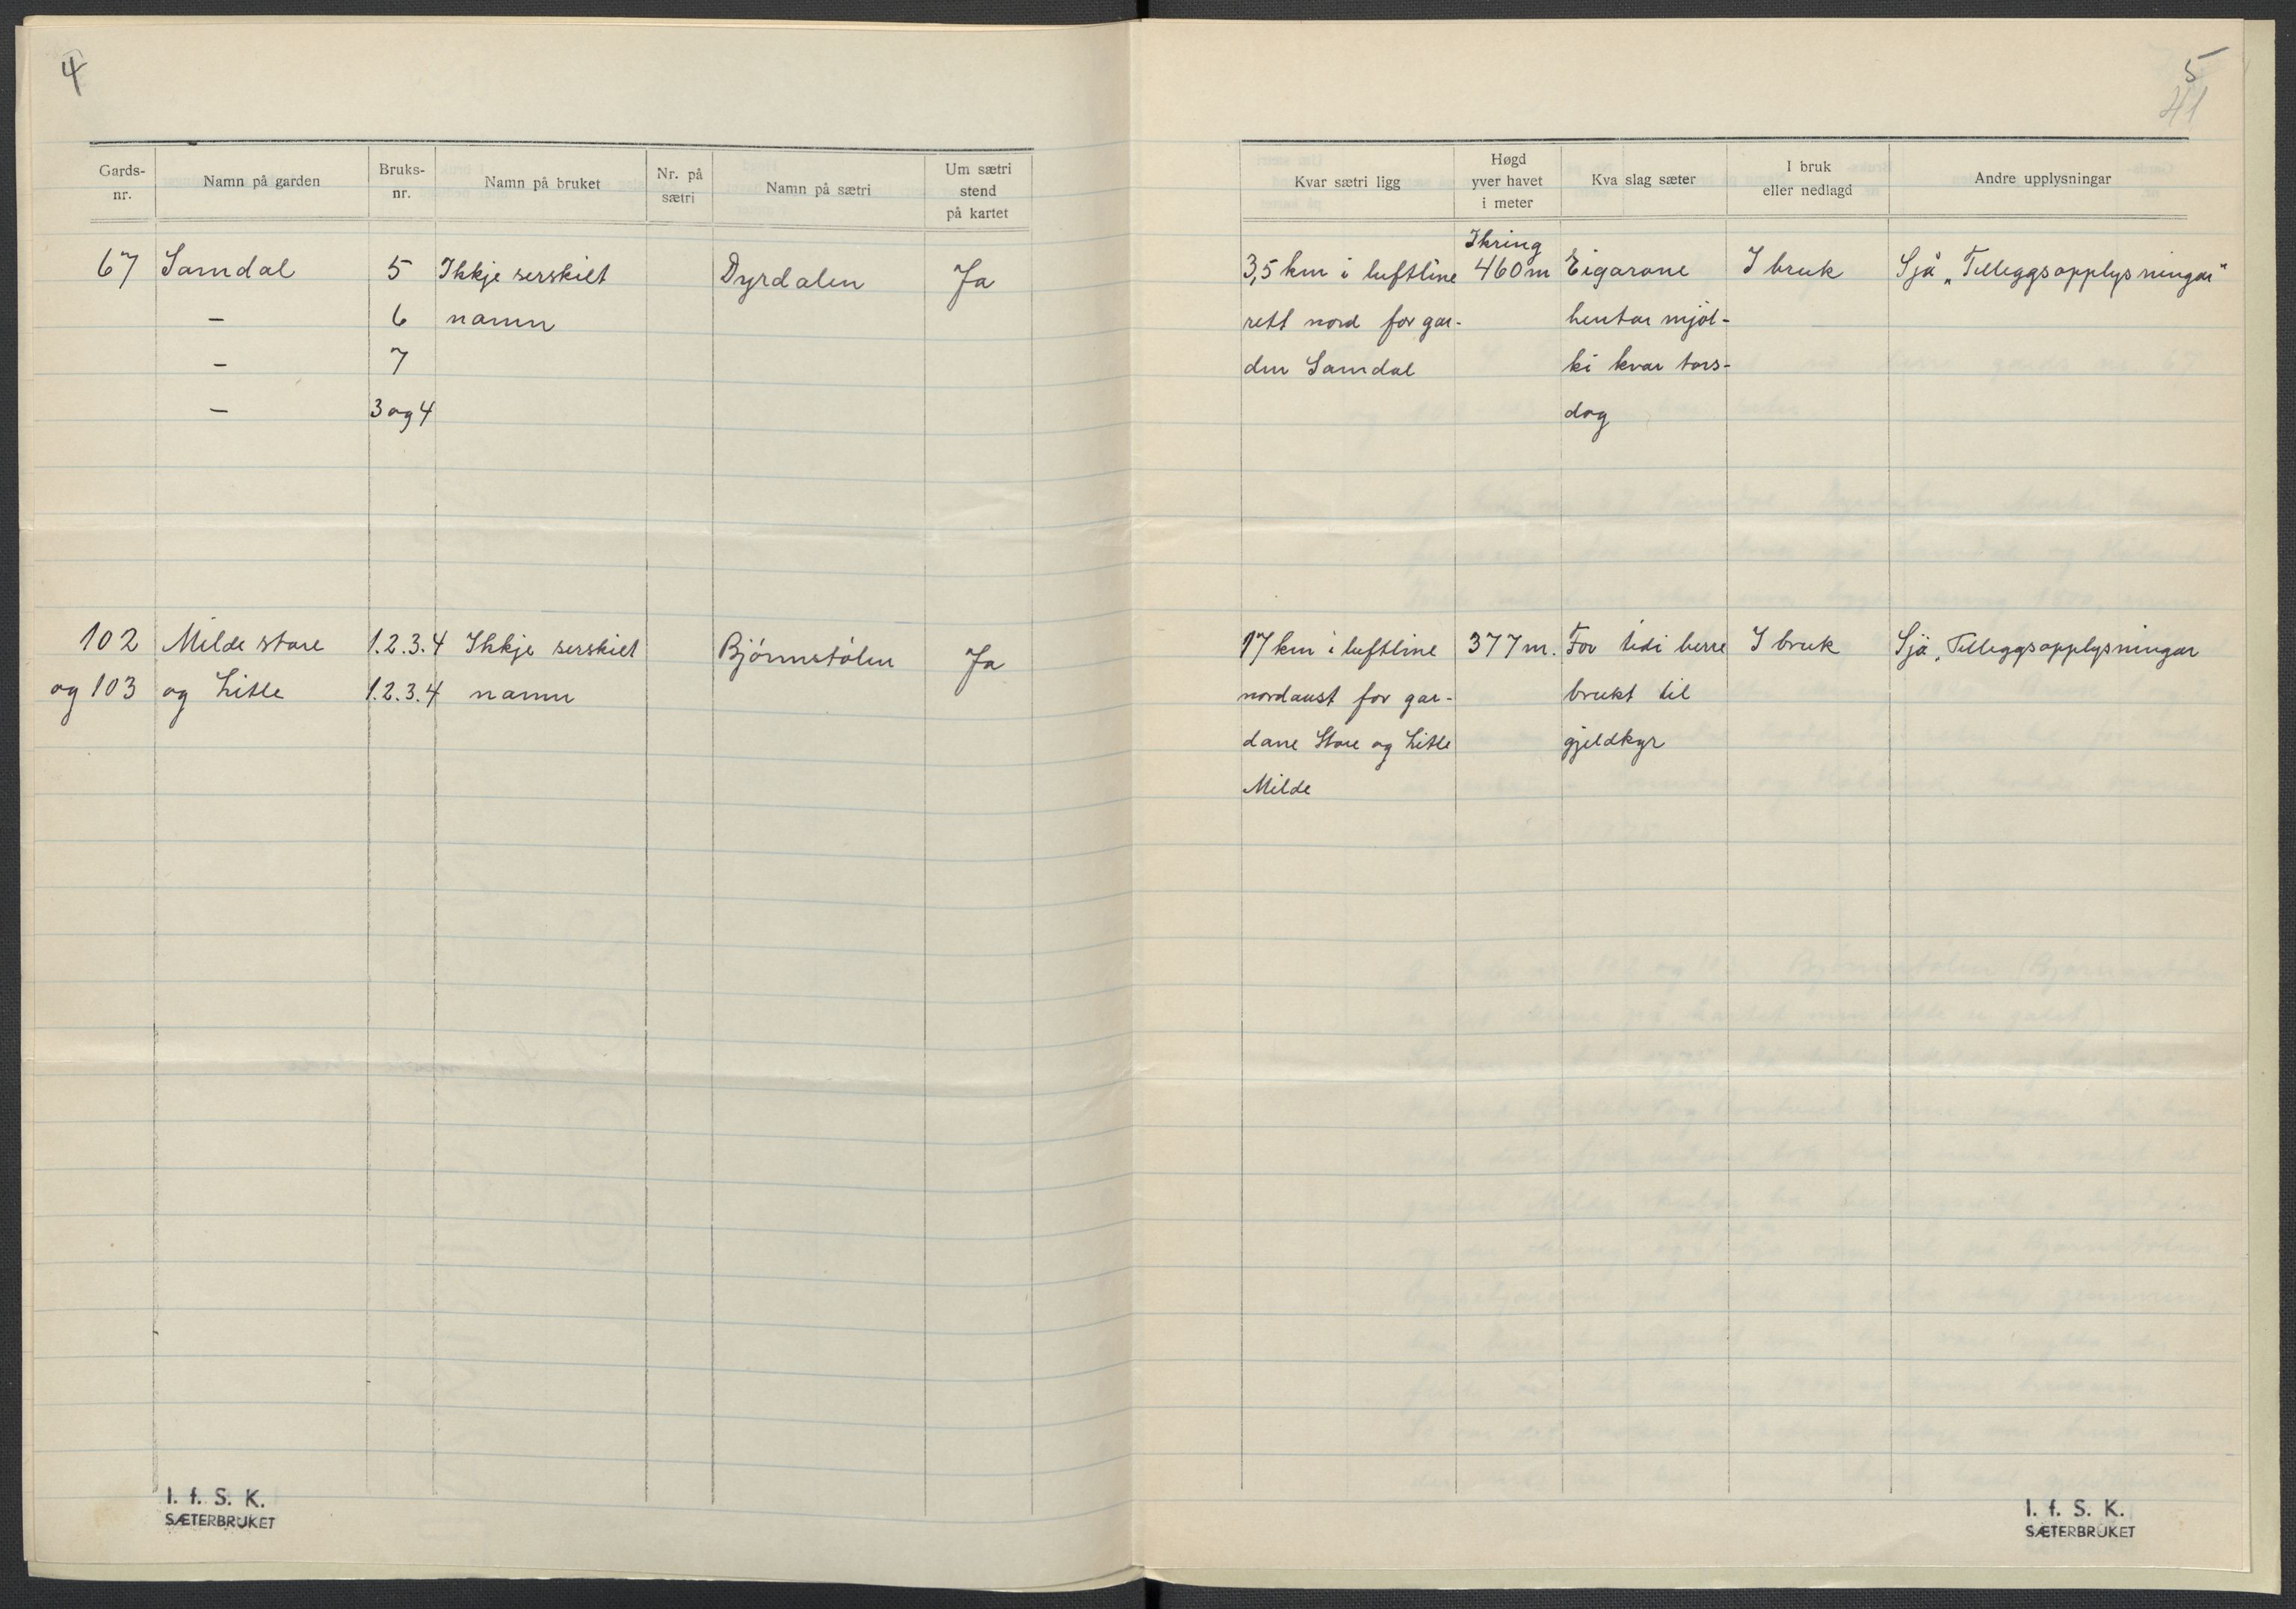 4
Gards-
nr.
Namn på garden
Bruks-
nr.
Namn på bruket
Nr. på
sætri
Namn på sætri
Um sætri
stend
på kartet
67 Samdal 5 Ikkje serskilt Dyrdalen Ja
– 6 namn
– 7
– 3 og 4
102 Milde store 1.2.3.4 Ikkje serskilt Bjørnstølen Ja
og 103 og Litle 1.2.3.4 namn
I. f. S. K.
SÆTERBRUKET
5
41
Kvar sætri ligg
Høgd
yver havet
i meter
Kva slag sæter
I bruk
eller nedlagd
Andre upplysningar
Ikring
3,5 km i luftline 460 m Eigarane I bruk Sjå „Tilleggsopplysningar"
rett nord for gar- hentar mjøl-
den Samdal ki kvar tors-
dag
17 km i luftline 377 m. For tidi berre I bruk Sjå „Tilleggsopplysningar
nordaust for gar- brukt til
dane Store og Litle gjeldkyr
Milde
I. f. S. K.
SÆTERBRUKET